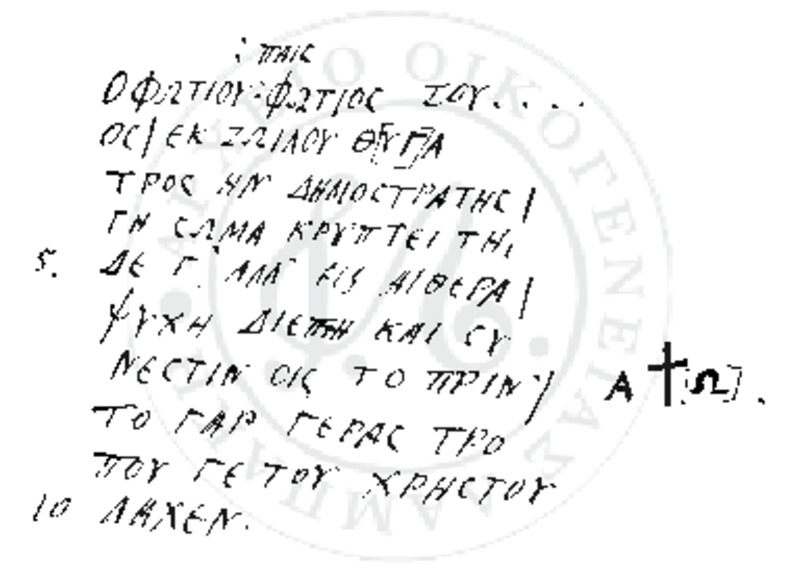 : ΠΑΙC
Ο ΦΩΤΙΟΥ: ΦΩΤΙΟC ΣΟΥ....
ΟC| ΕΚ ΖΩΙΛΟΥ Θ[ΥΓ]Α
ΤΡΟC ΗΝ ΔΗΜΟCΤΡΑΤΗC|
ΓΗ CΩΜΑ ΚΡΥΠΤΕΙ ΤΗ
5. ΔΕ Γ' ΑΛΛ' ΕΙΣ ΑΙΘΕΡΑ|
ΨΥΧΗ ΔΙΕΠΤΗ ΚΑΙ CΥ
ΝΕCΤΙΝ ΟΙC ΤΟ ΠΡΙΝ| Α † [Ω].
ΤΟ ΓΑΡ ΓΕΡΑC ΤΡΟ
ΠΟΥ ΓΕ ΤΟΥ ΧΡΗCΤΟΥ
10 ΛΑΧΕΝ.
ΑΡΧΕΙΟ ΟΙΚΟΓΕΝΕΙΑΣ ΛΑΜΠΑΚΗ